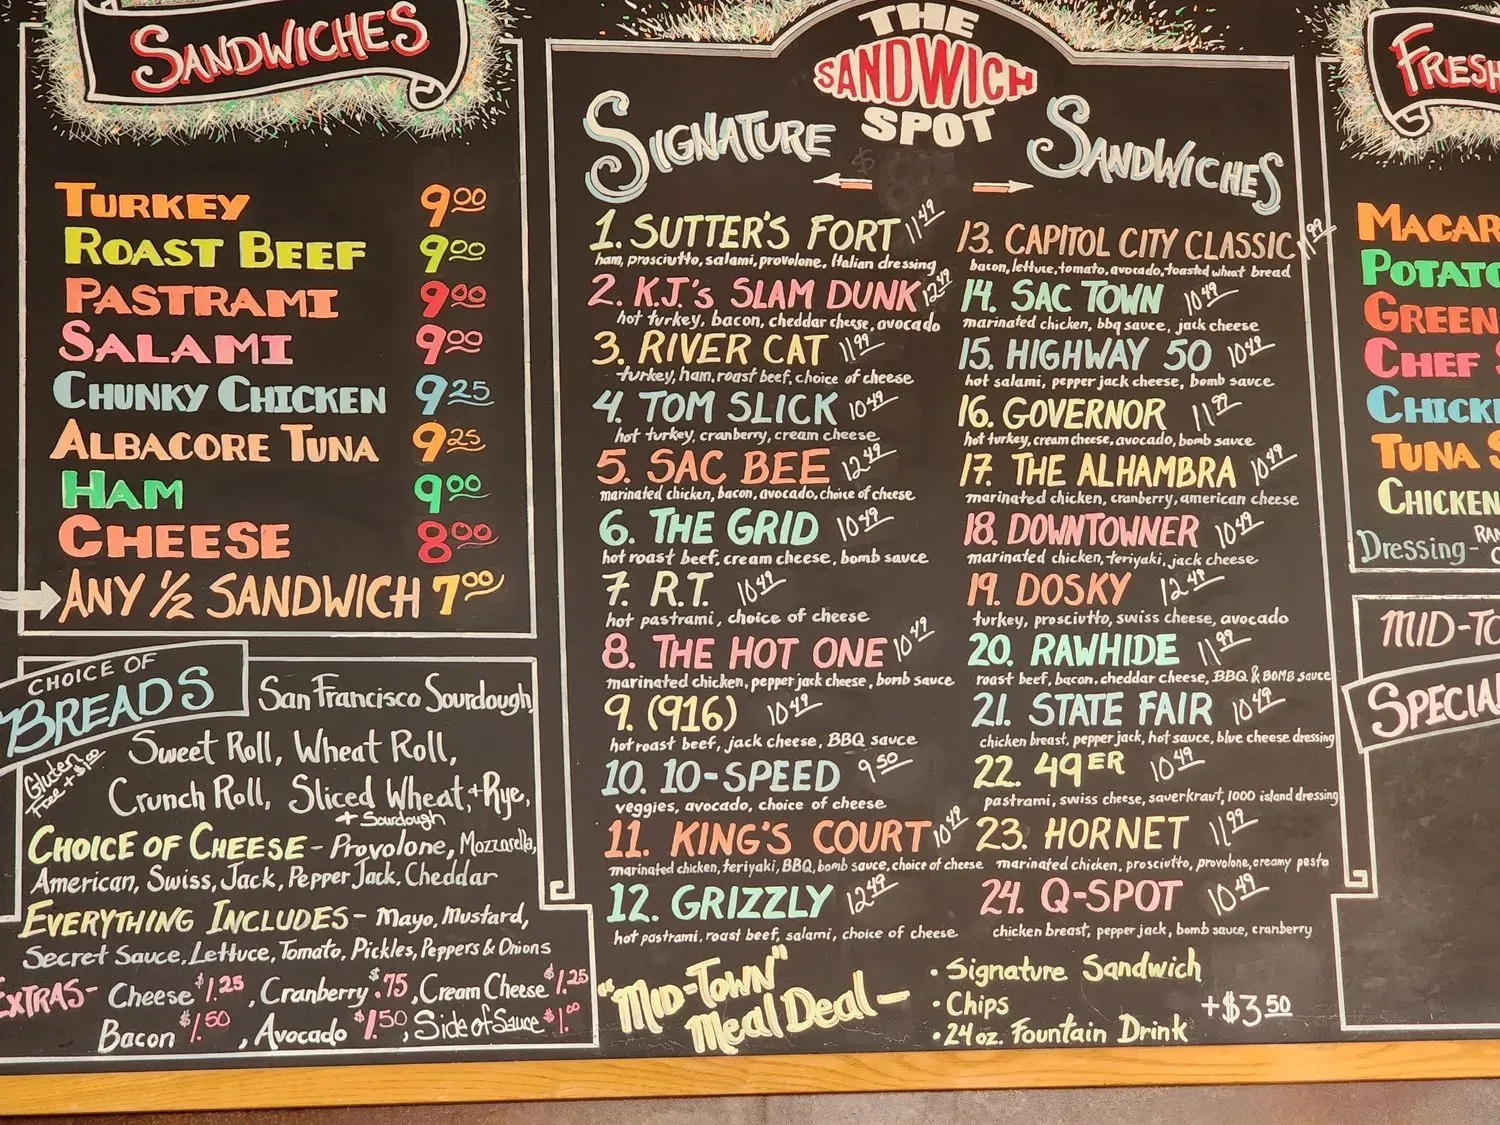 SANDWICHES
TURKEY 9.00
ROAST BEEF 9.00
PASTRAMI 9.00
SALAMI 9.00
CHUNKY CHICKEN 9.25
ALBACORE TUNA 9.25
HAM 9.00
CHEESE 8.00
ANY 1/2 SANDWICH 7.00
CHOICE OF
BREADS
San Francisco Sourdough,
Sweet Roll, Wheat Roll,
Gluten
Free + $1.00
Crunch Roll, Sliced Wheat, + Rye,
+ Sourdough
CHOICE OF CHEESE - Provolone, Mozzarella,
American, Swiss, Jack, Pepper Jack, Cheddar
EVERYTHING INCLUDES - Mayo, Mustard,
Secret Sauce, Lettuce, Tomato, Pickles, Peppers & Onions
EXTRAS - Cheese $1.25, Cranberry $.75, Cream Cheese $1.25
Bacon $1.50, Avocado $1.50, Side of Sauce $1.00
THE
SANDWICH
SPOT
SIGNATURE SANDWICHES
1. SUTTER'S FORT 11.49
ham, prosciutto, salami, provolone, Italian dressing
2. K.J.'s SLAM DUNK 12.49
hot turkey, bacon, cheddar cheese, avocado
3. RIVER CAT 11.99
turkey, ham, roast beef, choice of cheese
4. TOM SLICK 10.49
hot turkey, cranberry, cream cheese
5. SAC BEE 12.49
marinated chicken, bacon, avocado, choice of cheese
6. THE GRID 10.49
hot roast beef, cream cheese, bomb sauce
7. R.T. 10.49
hot pastrami, choice of cheese
8. THE HOT ONE 10.49
marinated chicken, pepper jack cheese, bomb sauce
9. (916) 10.49
hot roast beef, jack cheese, BBQ sauce
10. 10-SPEED 9.50
veggies, avocado, choice of cheese
11. KING'S COURT 10.49
marinated chicken, teriyaki, BBQ, bomb sauce, choice of cheese
12. GRIZZLY 12.49
hot pastrami, roast beef, salami, choice of cheese
13. CAPITOL CITY CLASSIC 11.99
bacon, lettuce, tomato, avocado, toasted wheat bread
14. SAC TOWN 10.49
marinated chicken, bbq sauce, jack cheese
15. HIGHWAY 50 10.49
hot salami, pepper jack cheese, bomb sauce
16. GOVERNOR 11.99
hot turkey, cream cheese, avocado, bomb sauce
17. THE ALHAMBRA 10.49
marinated chicken, cranberry, american cheese
18. DOWNTOWNER 10.49
marinated chicken, teriyaki, jack cheese
19. DOSKY 12.49
turkey, prosciutto, swiss cheese, avocado
20. RAWHIDE 11.99
roast beef, bacon, cheddar cheese, BBQ & BOMB sauce
21. STATE FAIR 10.49
chicken breast, pepper jack, hot sauce, blue cheese dressing
22. 49ER 10.49
pastrami, swiss cheese, sauerkraut, 1000 island dressing
23. HORNET 11.99
marinated chicken, prosciutto, provolone, creamy pesto
24. Q-SPOT 10.49
chicken breast, pepper jack, bomb sauce, cranberry
"MID-TOWN"
Meal Deal -
• Signature Sandwich
• Chips +$3.50
• 24 oz. Fountain Drink
FRESH
MACAR
POTATO
GREEN
CHEF S
CHICK
TUNA S
CHICKEN
Dressing - RAN
MID-TO
SPECIA